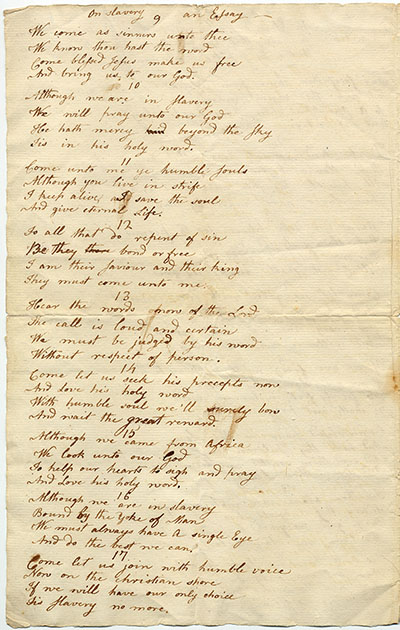 On slavery 9 an Essay
We come as sinners unto thee
We know thou hast the word
Come blessed Jesus make us free
And bring us to our God.
10
Although we are in slavery
We will pray unto our God
He hath mercy had beyond the sky
Tis in his holy word.
11
Come unto me ye humble souls
Although you live in strife
I keep alive, and save the soul
And give eternal Life.
12
To all that do repent of sin
Be they there bond or free
I am their saviour and their king
They must come unto me.
13
Hear the words now of the Lord
The call is loud and certain
We must be judged by his word
Without respect of person.
14
Come let us seek his precepts now
And love his holy word
With humble soul we'll surely bow
And wait the great reward.
15
Although we came from Africa
We look unto our God
To help our hearts to sigh and pray
And Love his holy word.
16
Although we are in slavery
Bound by the yoke of Man
We must always have a single Eye
And do the best we can.
17
Come let us join with humble voice
Now on the christian shore
If we will have our only choice
Tis Slavery no more.